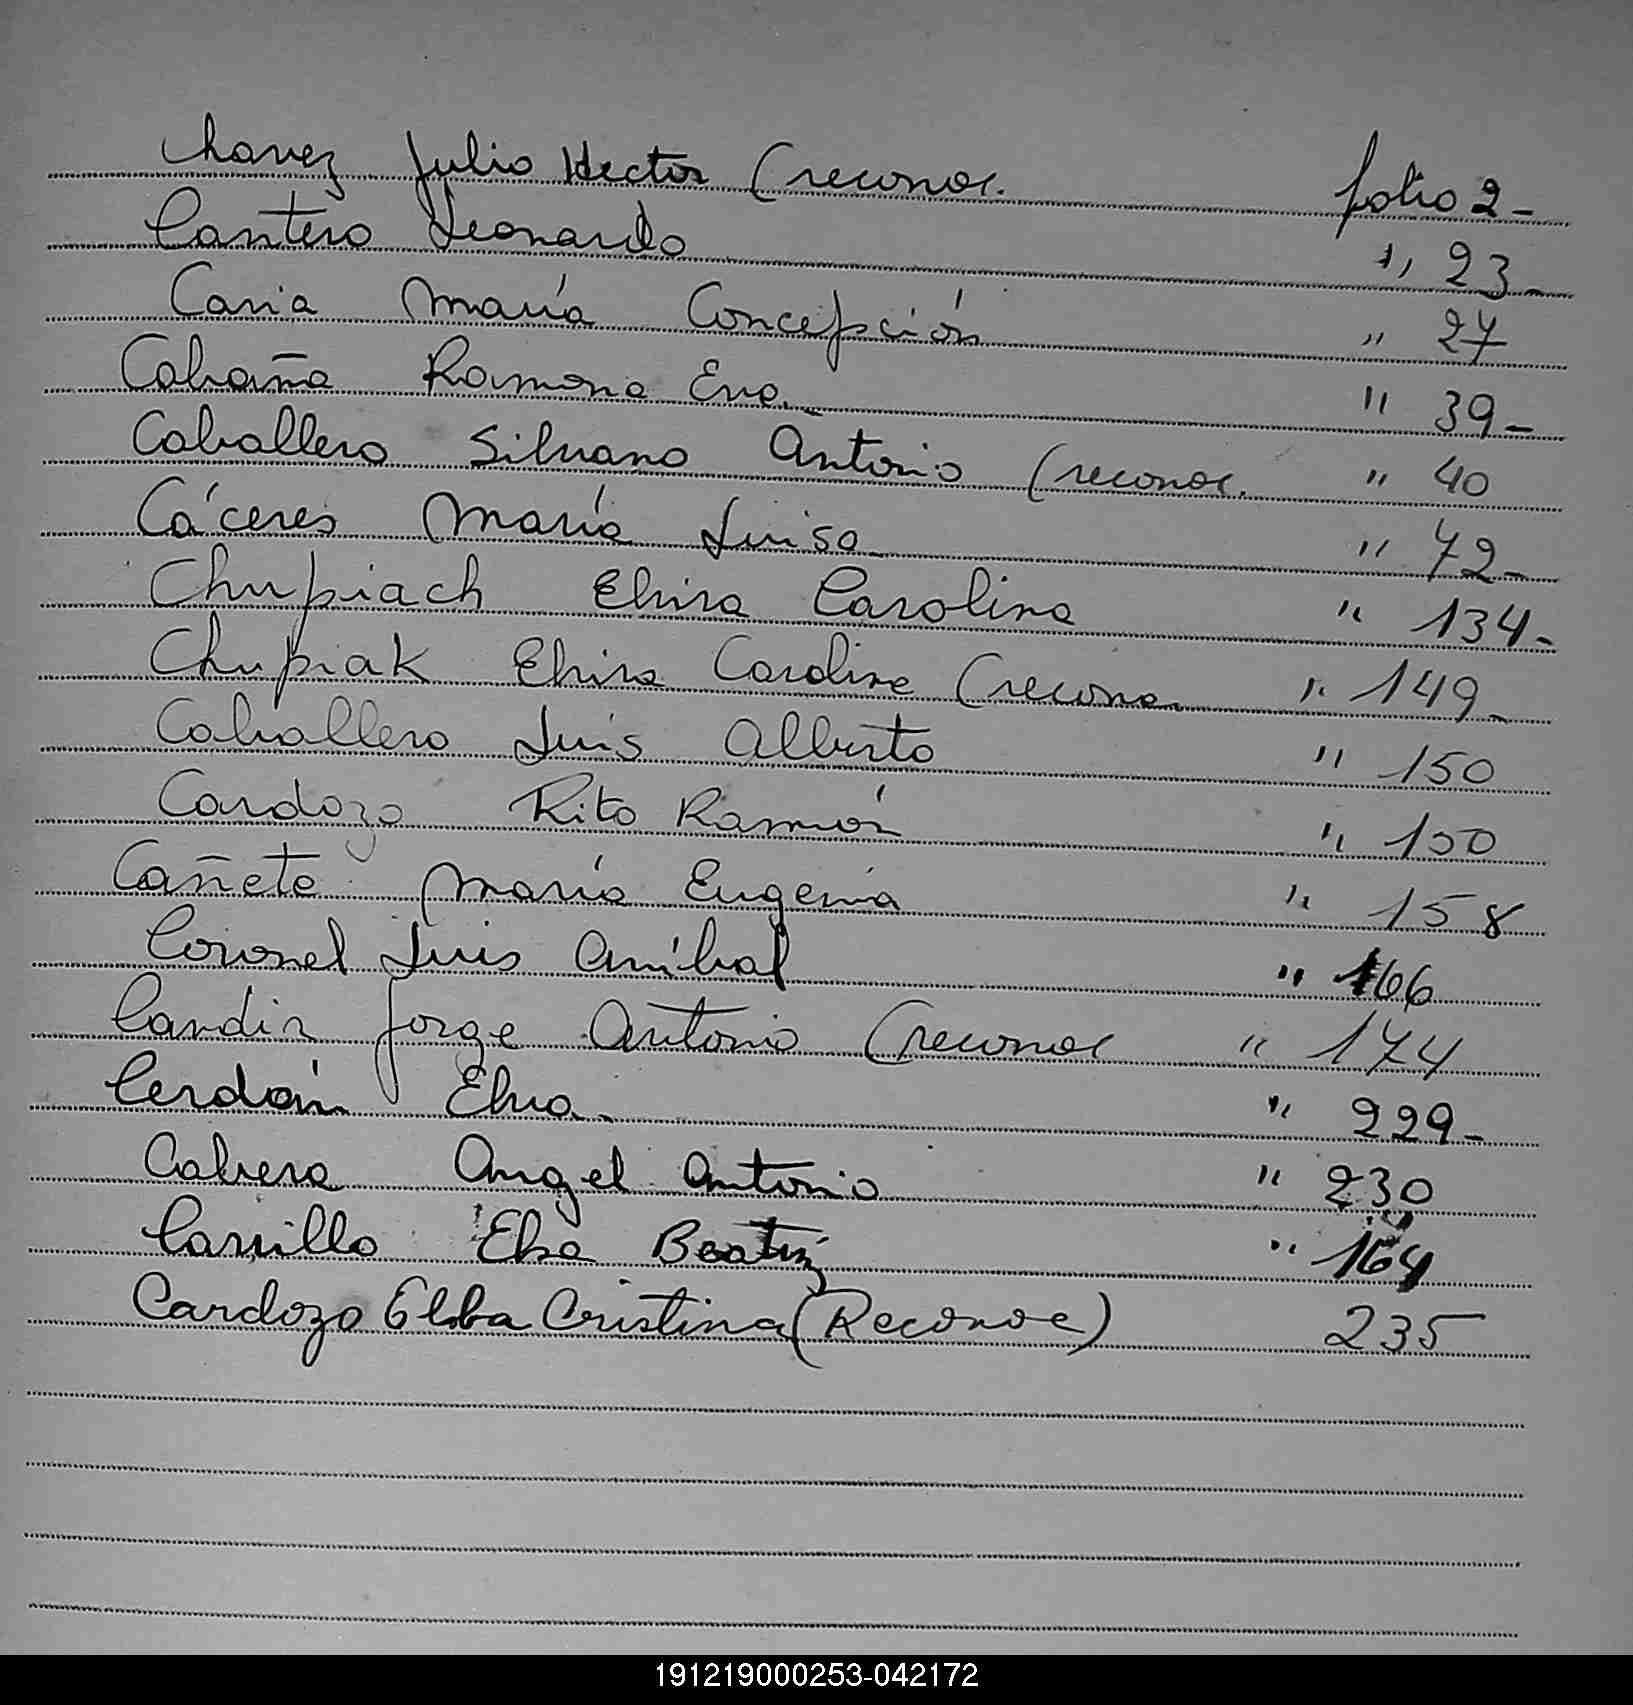 Chavez Julio Hector (reconoc. folio 2-
Cantero Leonardo " 23-
Caria María Concepción " 27
Cabaña Ramona Eva. " 39-
Caballero Silvano Antonio (reconoc. " 40
Cáceres María Luisa " 72-
Chupiach Elvira Carolina " 134-
Chupiak Elvira Carolina (reconoc. " 149-
Caballero Luis Alberto " 150
Cardozo Rito Ramón " 150
Cañete María Eugenia " 158
Coronel Luis Aníbal " 166
Candia Jorge Antonio (reconoc " 174
Cerdán Elva. " 229-
Cabrera Angel Antonio " 230
Carrillo Elsa Beatriz " 164
Cardozo Elba Cristina (Reconoc) 235
191219000253-042172